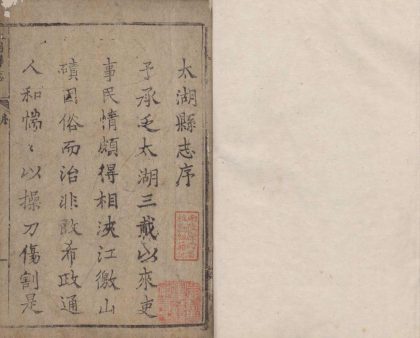 太湖縣志序
予承乏太湖三載以來吏
事民情頗得相浹江徼山
磧因俗而治非敢希政通
人和惴〻以操刀傷割是